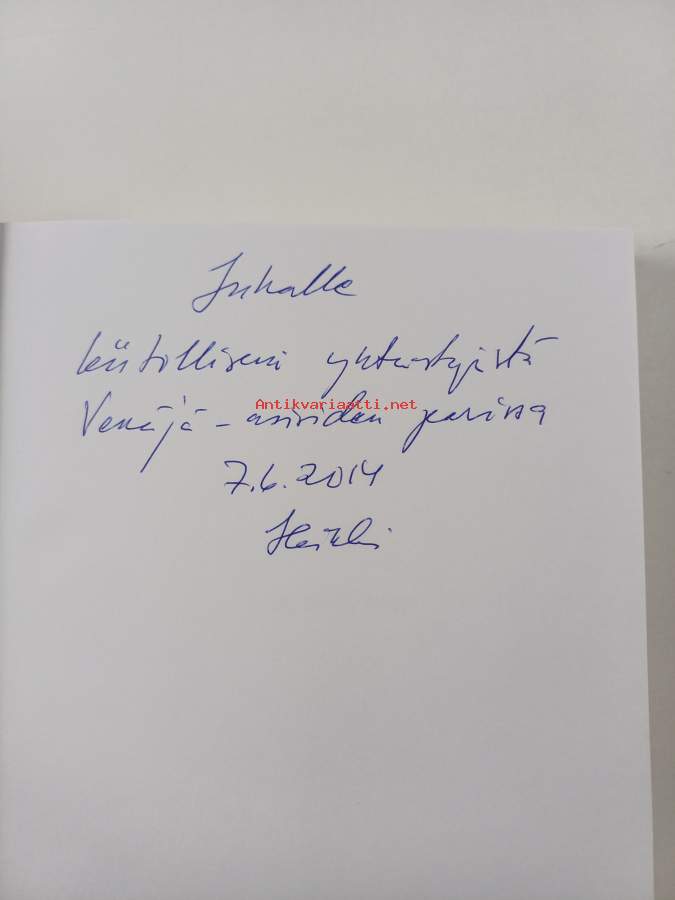 Juhalle
kiitollisena yhteistyöstä
Antikvariaatti.net
Venäjä-asioiden parissa
7.6.2014
Heikki